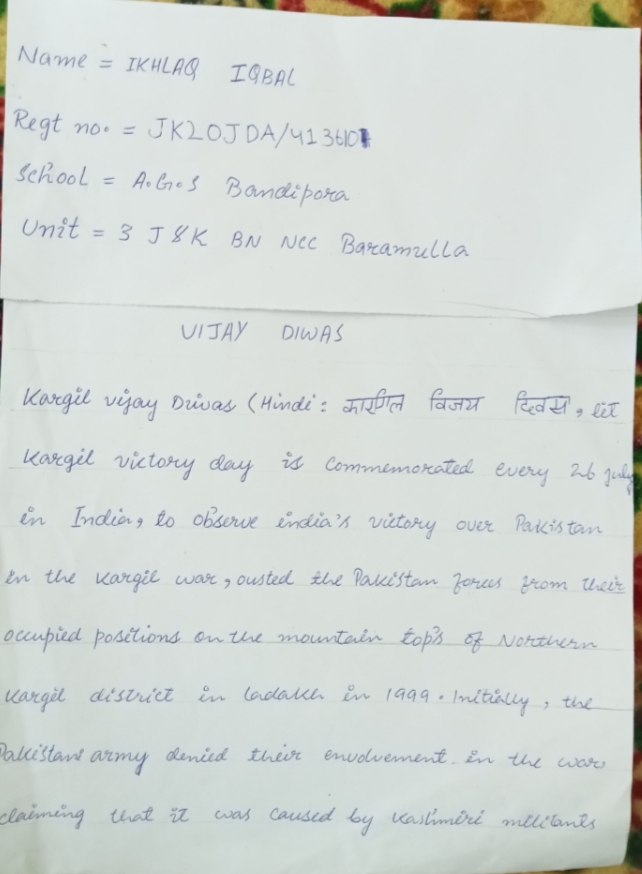 Name = IKHLAQ IQBAL
Regt no. = JK20JDA/413610
School = A.G.S Bandipora
Unit = 3 J&K BN NCC Baramulla
VIJAY DIWAS
Kargil vijay Diwas (Hindi: कारगिल विजय दिवस, lit
Kargil victory day is commemorated every 26 july
in India, to observe india's victory over Pakistan
in the Kargil war, ousted the Pakistan forces from their
occupied positions on the mountain top's of Northern
Kargil district in ladakh in 1999. Initially, the
Pakistani army denied their envolvement. in the war
claiming that it was caused by Kashmiri militants